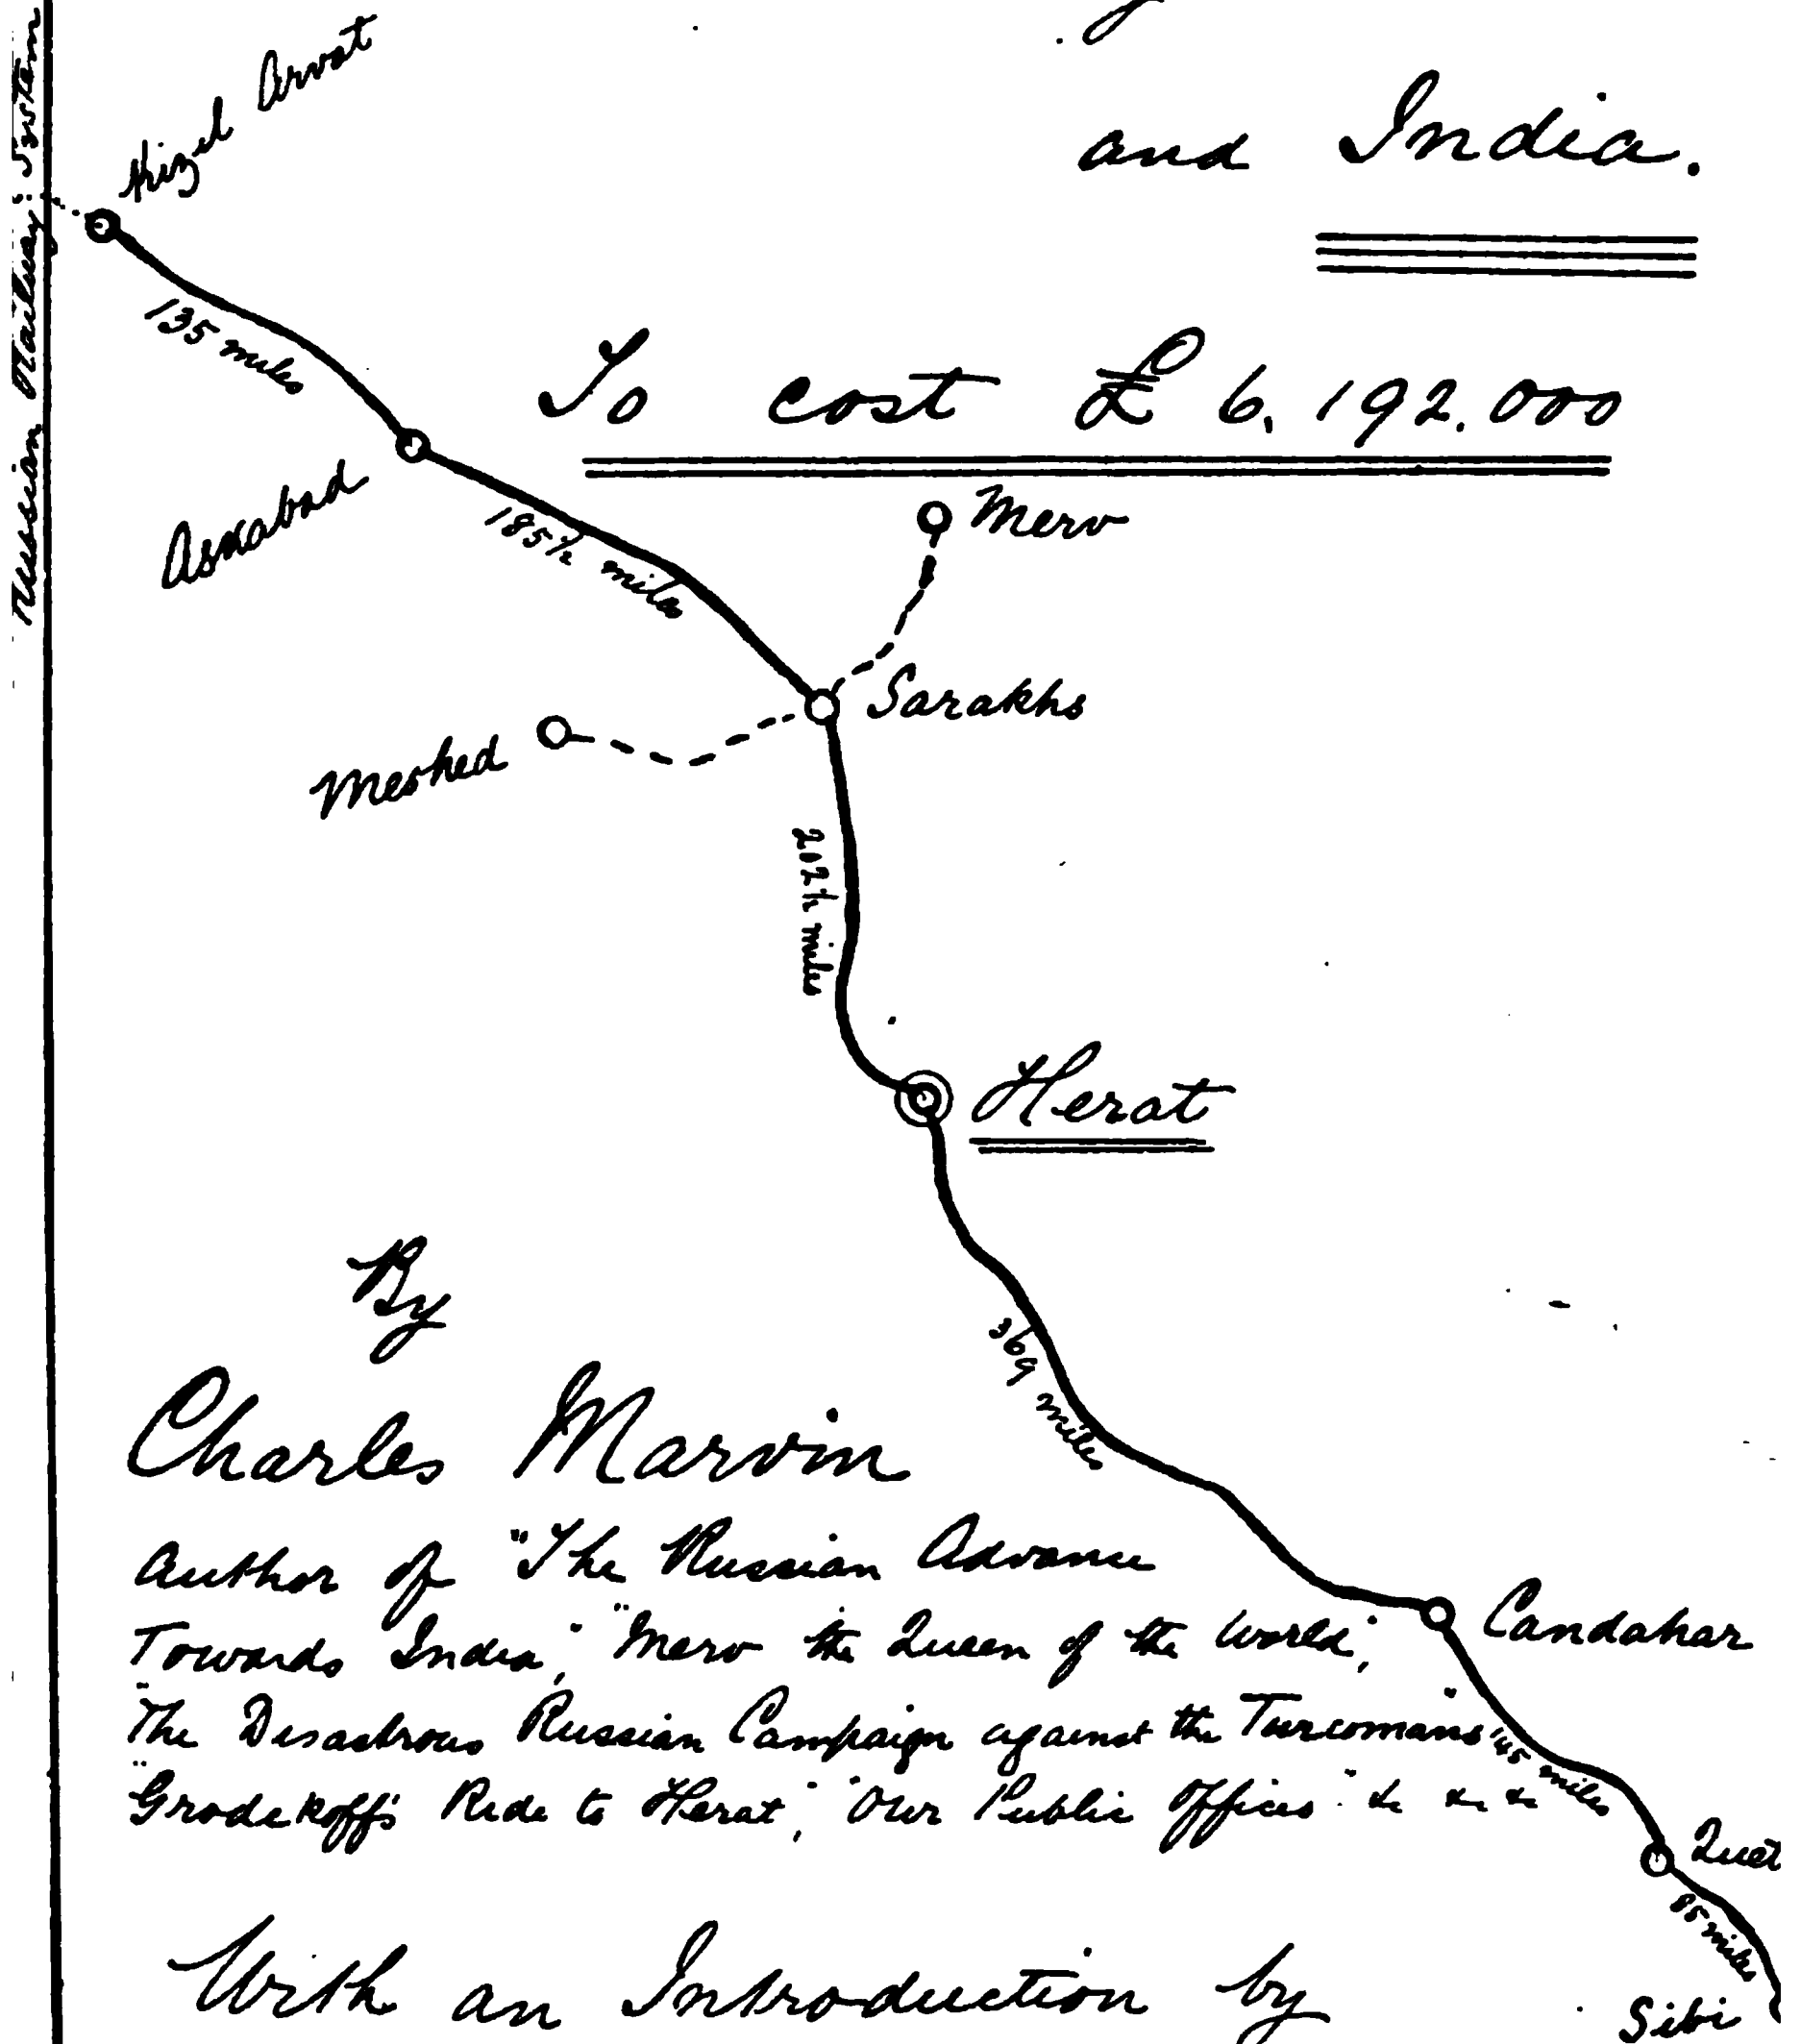 and India.
Kizil Arvat
Russian Railway System
135 miles
To cost £ 6,192.000
Askabad
185½ miles
Merv
Sarakhs
Meshed
202½ miles
Herat
By
369 miles
Charles Marvin
Author of "The Russian Advance
Towards India," "Merv the Queen of the World,"
"The Disastrous Russian Campaign against the Turcomans"
"Grodekoff's Ride to Herat," "Our Public Offices" &c &c &c
Candahar
145 miles
Quet
85 miles
With an Introduction by
Sibi